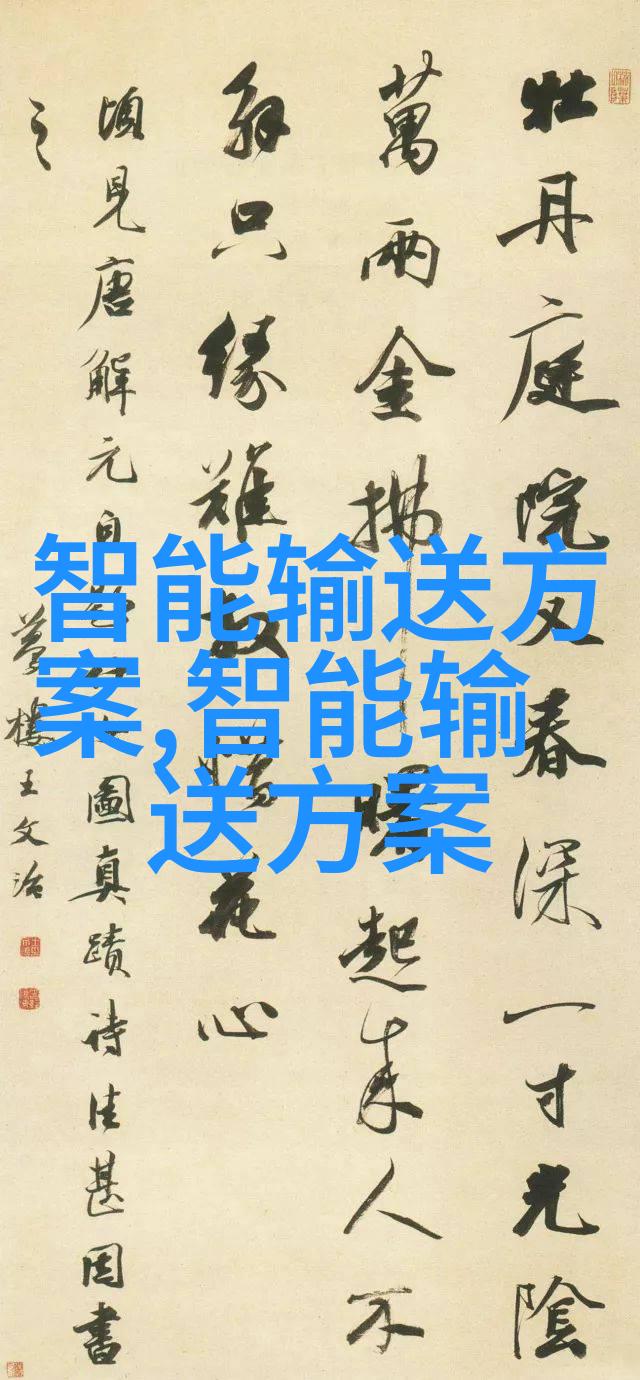 牡丹庭院又春深一寸光陰
萬兩金拂曙起來人不
解只緣難放惜花心
頃見唐解元自圖真蹟詩佳甚因書
之
夢樓王文治
智能输送方
案,智能输
送方案